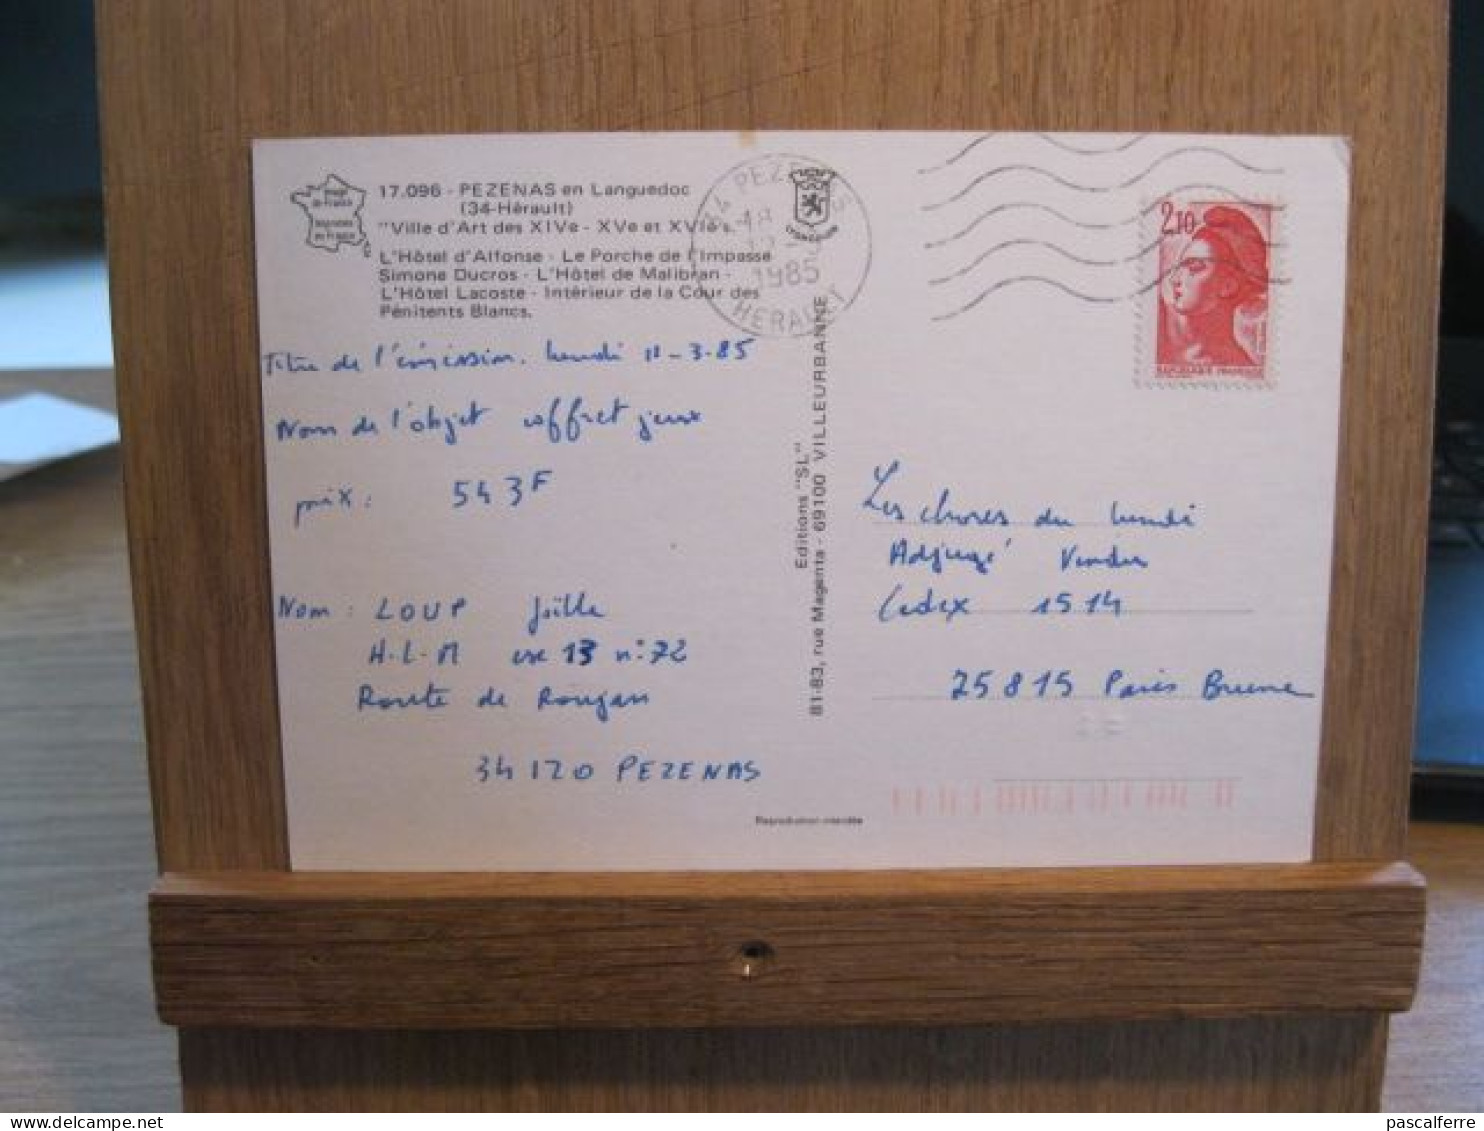 17.096 - PEZENAS en Languedoc
(34-Hérault)
"Ville d'Art des XIVe - XVe et XVIe s.
L'Hôtel d'Alfonse - Le Porche de l'Impasse
Simone Ducros - L'Hôtel de Malibran -
L'Hôtel Lacoste - Intérieur de la Cour des
Pénitents Blancs.
34 PEZENAS
1985
HERAULT
2,10
REPUBLIQUE FRANÇAISE
Titre de l'émission. lundi 11-3-85
Nom de l'objet coffret jeux
prix : 543F
Nom : LOUP Joëlle
H.L.M esc 13 n: 72
Route de Roujan
34120 PEZENAS
Editions "SL"
81-83, rue Magenta - 69100 VILLEURBANNE
Les choses du lundi
Adjugé Vendu
Cedex 1514
75815 Paris Brune
Reproduction interdite
pascalferre